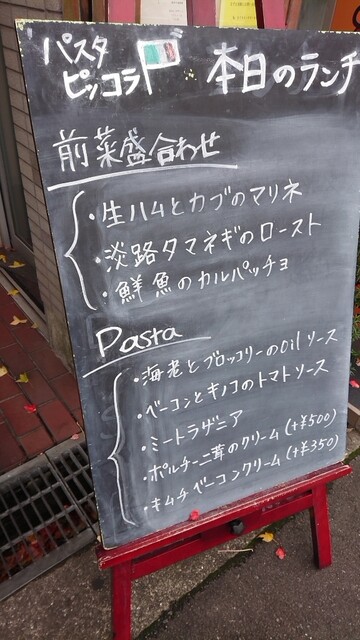 パスタ
ピッコラ
本日のランチ
前菜盛合わせ
・生ハムとカブのマリネ
・淡路タマネギのロースト
・鮮魚のカルパッチョ
Pasta
・海老とブロッコリーのOilソース
・ベーコンとキノコのトマトソース
・ミートラザニア
・ポルチーニ茸のクリーム(+¥500)
・キムチベーコンクリーム(+¥350)